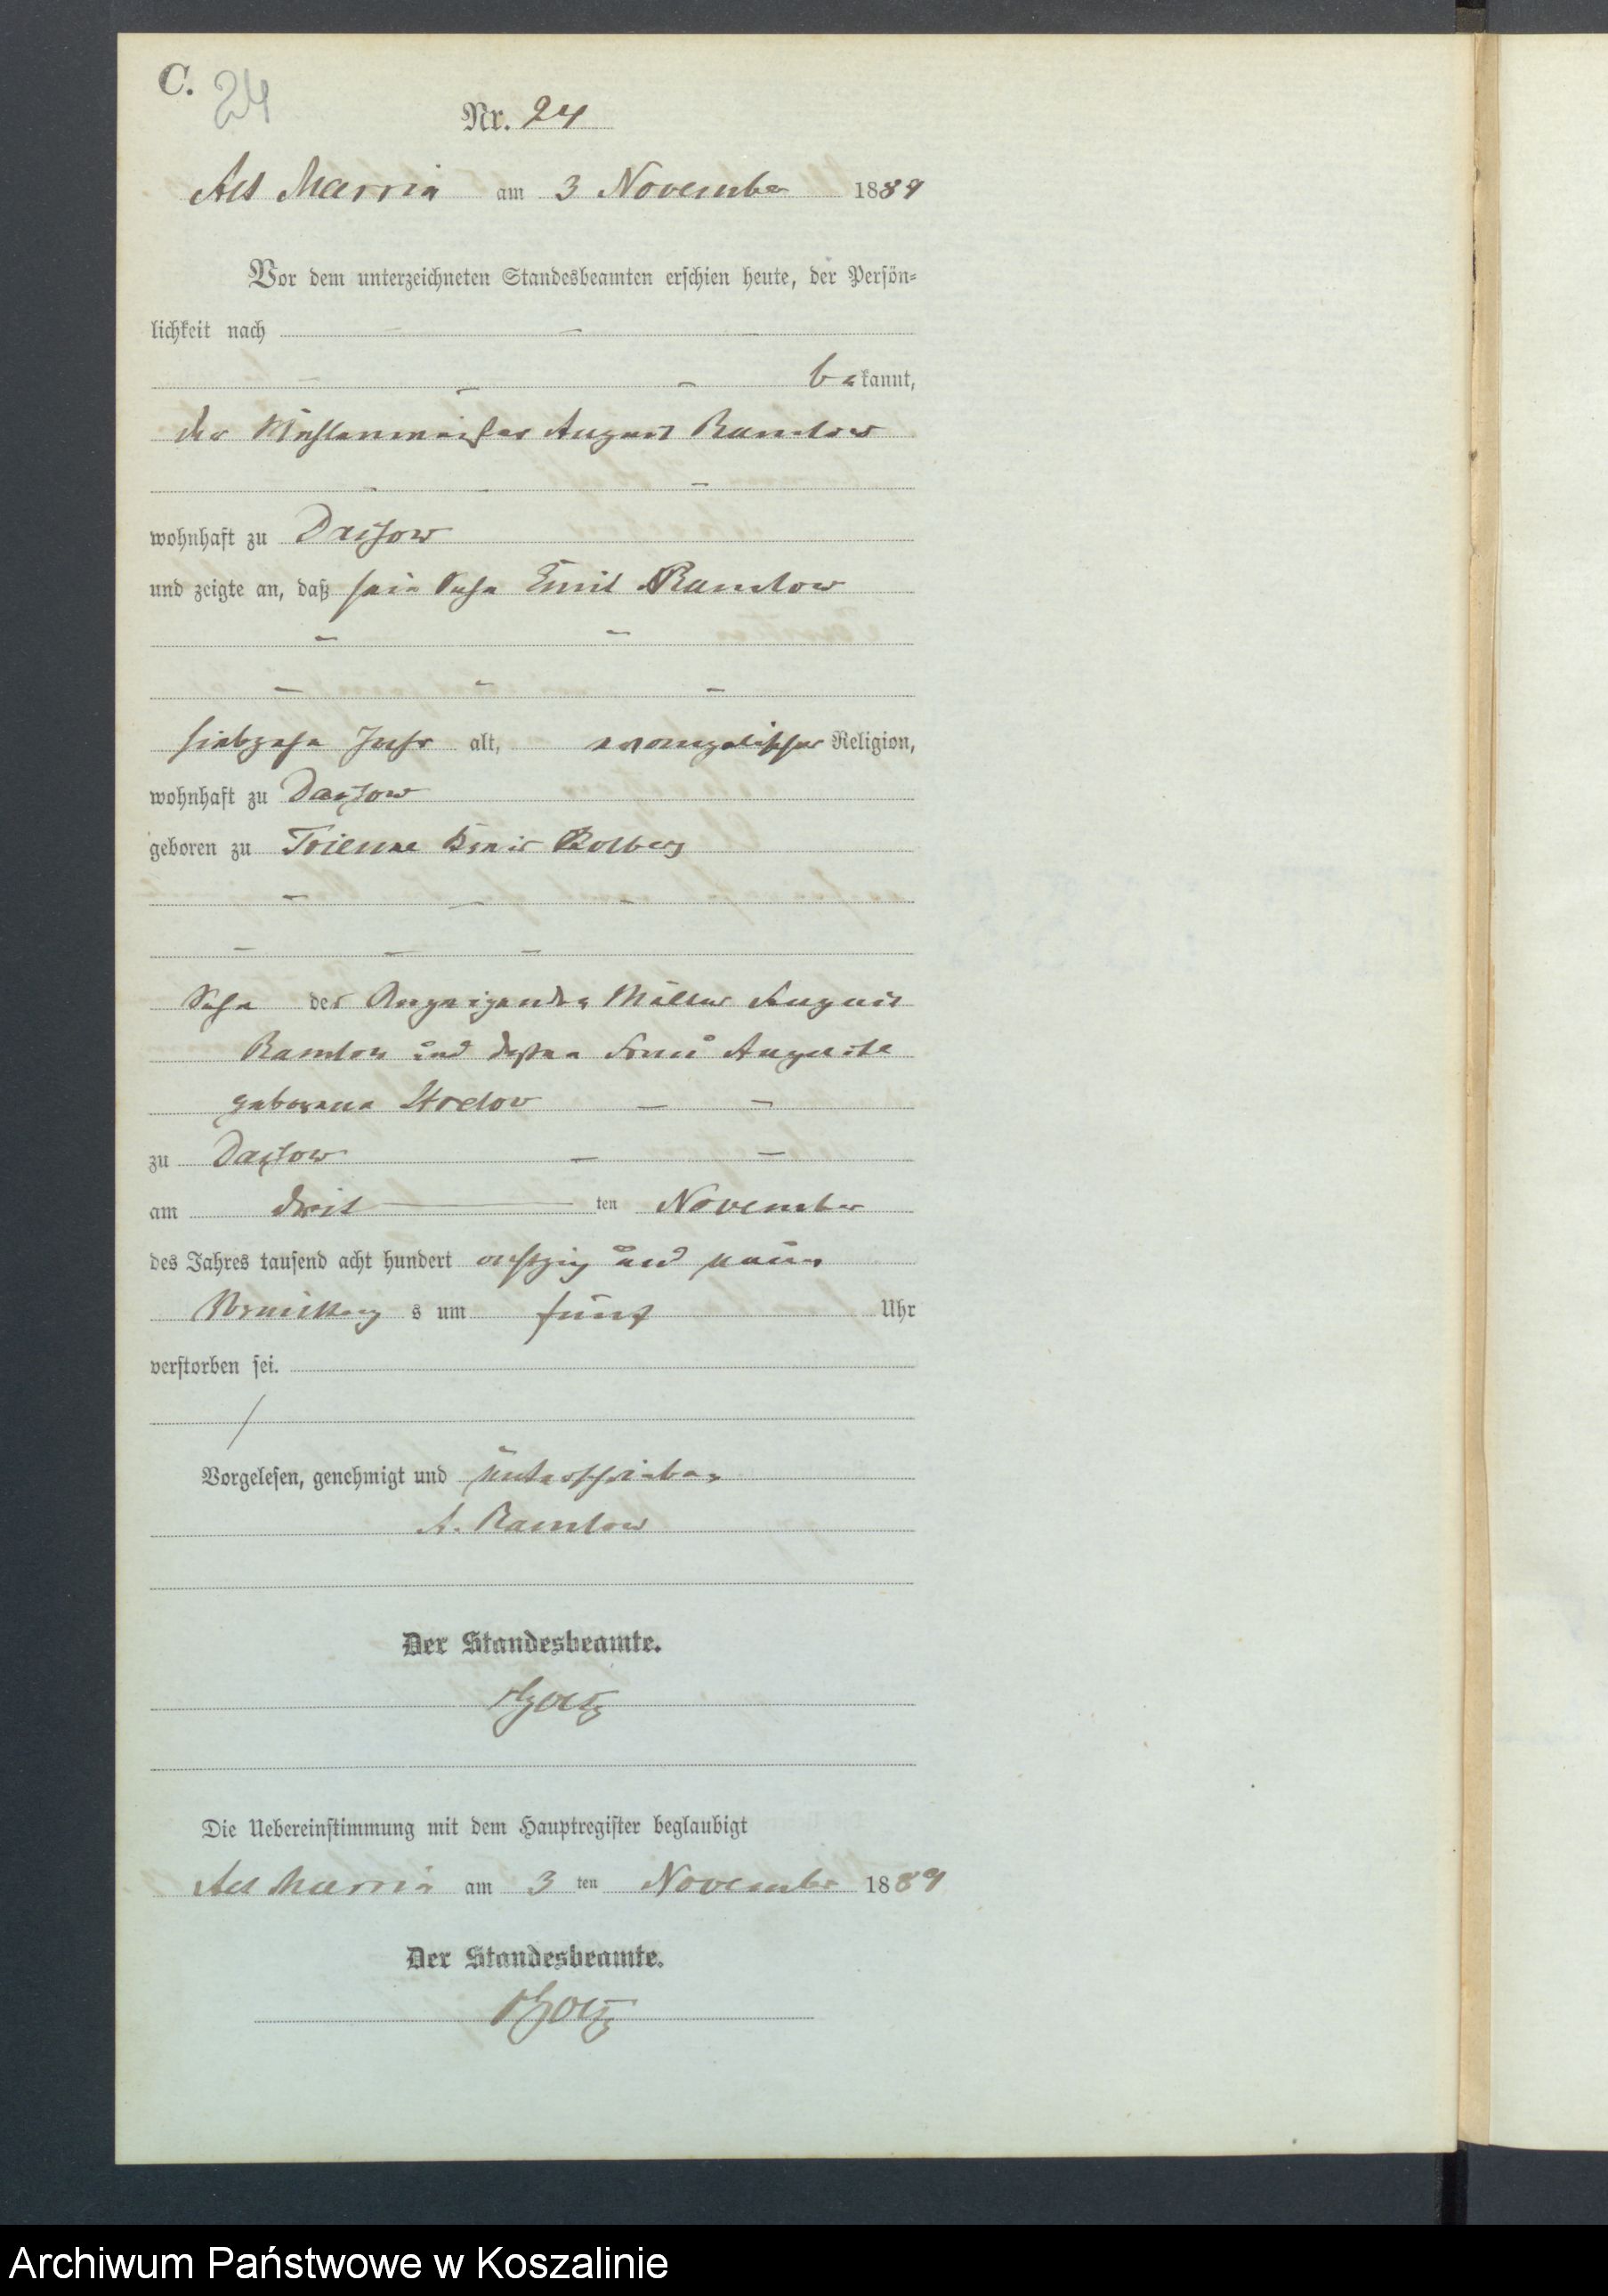 C. 24
Nr. 24
Alt Marrin am 3 November 1889
Vor dem unterzeichneten Standesbeamten erschien heute, der Persön-
lichkeit nach
bekannt,
der Mühlenmeister August Ramlow
wohnhaft zu Dassow
und zeigte an, daß sein Sohn Emil Ramlow
siebzehn Jahr alt, evangelischer Religion,
wohnhaft zu Dassow
geboren zu Trienne Kreis Kolberg
Sohn des Anzeigenden Müller August
Ramlow und dessen Frau Auguste
geborene Strelow
zu Dassow
am drit ten November
des Jahres tausend acht hundert achtzig und neun
Vormittag s um fünf Uhr
verstorben sei.
Vorgelesen, genehmigt und unterschrieben
A. Ramlow
Der Standesbeamte.
Die Uebereinstimmung mit dem Hauptregister beglaubigt
Alt Marrin am 3 ten November 1889
Der Standesbeamte.
Archiwum Państwowe w Koszalinie